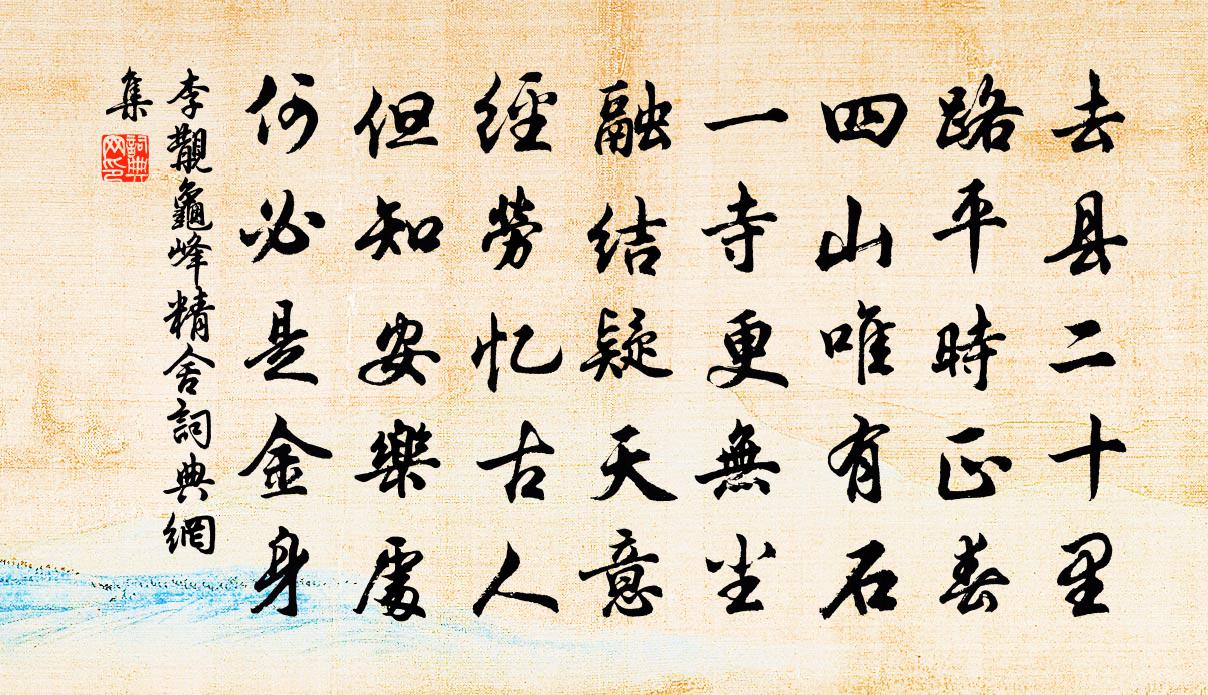 去县二十里
路平時正春
四山唯有石
一寺更無尘
融結疑天意
經勞忆古人
但知安樂處
何必是金身
李覯龜峰精舍詞典網
集
詞典网印